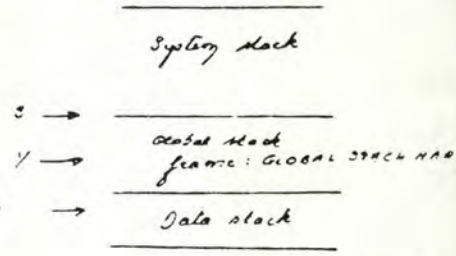 System stack
S →
Global stack
Y → frame: GLOBAL STACK MAR
→ Data stack